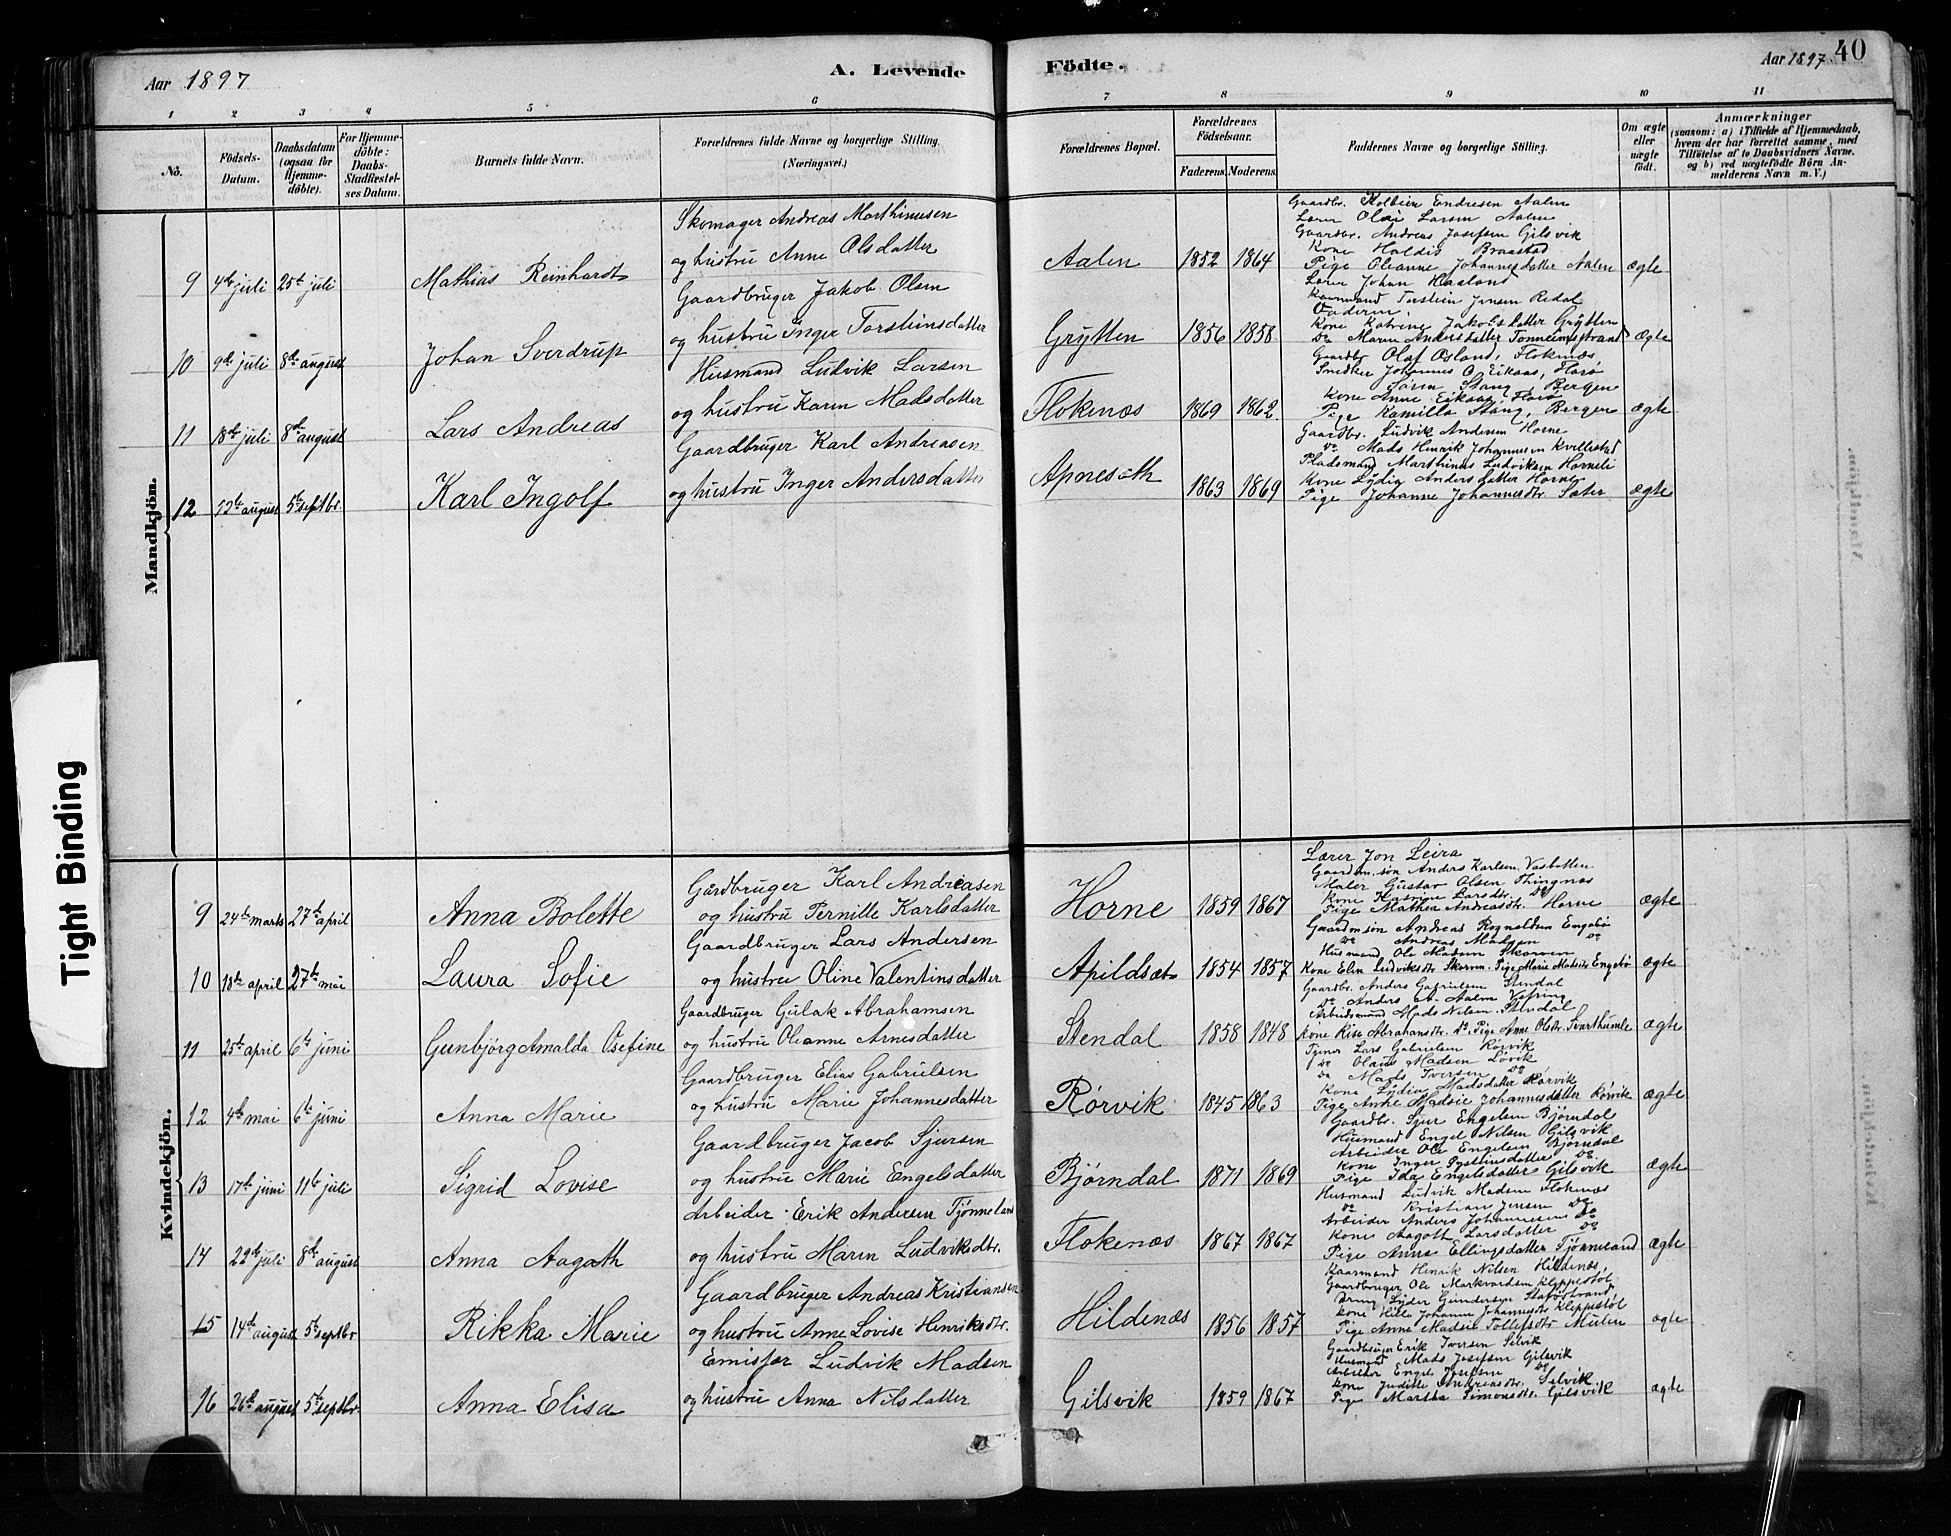 Aar 1897
A. Levende
Födte.
Aar 1897 40
1 2 3 4 5 6 7 8 9 10 11
No.
Födsels-Datum.
Daabsdatum (ogsaa for Hjemme-döbte).
For Hjemme-döbte: Daabs-Stadfæstel-ses Datum.
Barnets fulde Navn.
Forældrenes fulde Navne og borgerlige Stilling. (Næringsvei.)
Forældrenes Bopæl.
Forældrenes Födselsaar.
Faderens. Moderens.
Faddernes Navne og borgerlige Stilling.
Om ægte eller uægte födt.
Anmærkninger
(saasom: a) i Tilfælde af Hjemmedaab, hvem der har forrettet samme, med Tilföielse af to Daabsvidners Navne. og b) ved uægtefödte Börn An-melderens Navn m. V.)
Mandkjön.
Skomager Andreas Marthinusen
og hustru Anne Olsdatter
9 4de juli 25de juli Mathias Reinhardt
Aalen 1852 1864
Gaardbr. Kolbein Endresen Aalen
Lærer Olai Larsen Aalen
Gaardbr. Andreas Josefsen Gilsvik
Kone Haldis Braastad
Pige Oleanne Johannesdatter Aalen ægte
Gaardbruger Jakob Olsen
og hustru Inger Torsteinsdatter
10 9de juli 8de august Johan Sverdrup
Grytten 1856 1858
Lærer Johan Haaland
Kaarmand Torstein Jensen Redal
Faderen.
Kone Katrine Jakobsdatter Grytten
Do Maren Andersdatter Tonheimstrand ægte
Husmand Ludvik Larsen
og hustru Karen Madsdatter
11 18de juli 8de august Lars Andreas
Flokenæs 1869 1862
Gaardbr Olaf Osland, Flokenæs,
Snedker Johannes O. Eikaas, Florø
Søren Stang, Bergen
Kone Anne Eikaas, Florø
Pige Kamilla Stang, Bergen ægte
Gaardbruger Karl Andreasen
og hustru Inger Andersdatter
12 12te august 5te septbr. Karl Ingolf
Apnesøth 1863 1869
Gaardbr. Ludvik Andersen Horne
Do Mads Henrik Johannesen Kvellestad
Pladsmand Marthinus Ludviksen Horneli
Kone Lydia Andersdatter Horne
Pige Johanne Johannesdtr Sæter ægte
Kvindekjön.
Gårdbruger Karl Andreasen
og hustru Pernille Karlsdatter
9 24de marts 27de april Anna Bolette
Horne 1859 1867
Lærer Jon Leira
Gaardm.søn Anders Karlsen
Maler Gustav Olsen Thingnæs
Kone Katrine Larsdtr. Do
Pige Mathea Andreasdtr. Horne ægte
Gaardbruger Lars Andersen
og hustru Oline Valentinsdatter
10 18de april 27de mai Laura Sofie
Apildsæt 1854 1857
Gaardmsøn Andreas Rognaldsen Engebø
Do Andreas Madsen Do
Husmand Ole Madsen Skorven
Kone Elen Ludviksdtr Skorven. Pige Marie Madsdtr Engebø ægte
Gaardbruger Gulak Abrahamsen
og hustru Oleanne Arnesdatter
11 25de april 6te juni Gunbjörg Amalda Osefine
Stendal 1858 1848
Gaardbr. Anders Gabrielsen Stendal
Do Anders A. Aalen Vefring
Arbeidsmand Mads Nilsen Stendal
Kone Rise Abrahamsdtr. Do. Pige Anne Olsdtr. Svarthumle ægte
Gaardbruger Elias Gabrielsen
og hustru Marie Johannesdatter
12 4de mai 6te juni Anna Marie
Rörvik 1845 1863
Tjener Lars Gabrielsen Rörvik
Do Olaus Madsen Lövik
Do Mads Iversen Do
Kone Lydia Madsdatter Rörvik
Pige Anne Madsie Johannesdatter Rörvik ægte
Gaardbruger Jacob Sjursen
og hustru Marie Engelsdatter
13 17de juni 11te juli Sigrid Lovise
Bjørndal 1871 1869
Gaardbr. Sjur Engelsen Bjørndal
Husmand Engel Nilsen Gilsvik
Arbeider Ole Engelsen Bjørndal
Kone Inger Do
Pige Ida Engelsdatter Gilsvik ægte
Arbeider Erik Andersen Tjønneland
og hustru Maren Ludviksdtr.
14 22de juli 8de august Anna Aagath
Flokenæs 1867 1867
Husmand Ludvik Madsen Flokenæs
Do Kristian Jensen Do
Arbeider Anders Johannesen Do
Kone Aagoth Larsdatter Do
Pige Anna Ellingsdatter Tjønneland ægte
Gaardbruger Andreas Kristiansen
og hustru Anne Lovise Henriksdtr.
15 14de august 5te septbr Rikka Marie
Hildenæs 1856 1857
Kaarmand Henrik Nilsen Hildenæs,
Gaardbruger Ole Markvardsen Kleppestøl
Lyder Gundersen
Kone Johanne Johannesdtr Kleppestøl
Pige Anne Madsie Tollefsdtr Mulen ægte
Emisjær Ludvik Madsen
og hustru Anna Nilsdatter
16 26de august 5te septbr. Anna Elisa
Gilsvik 1859 1867
Gaardbruger Erik Iversen Selvik
Husmand Mads Josefsen Gilsvik
Arbeider Engel Josefsen Do
Kone Judithe Andreasdtr. Selvik
Pige Martha Simonsdtr. Gilsvik ægte
Tight Binding